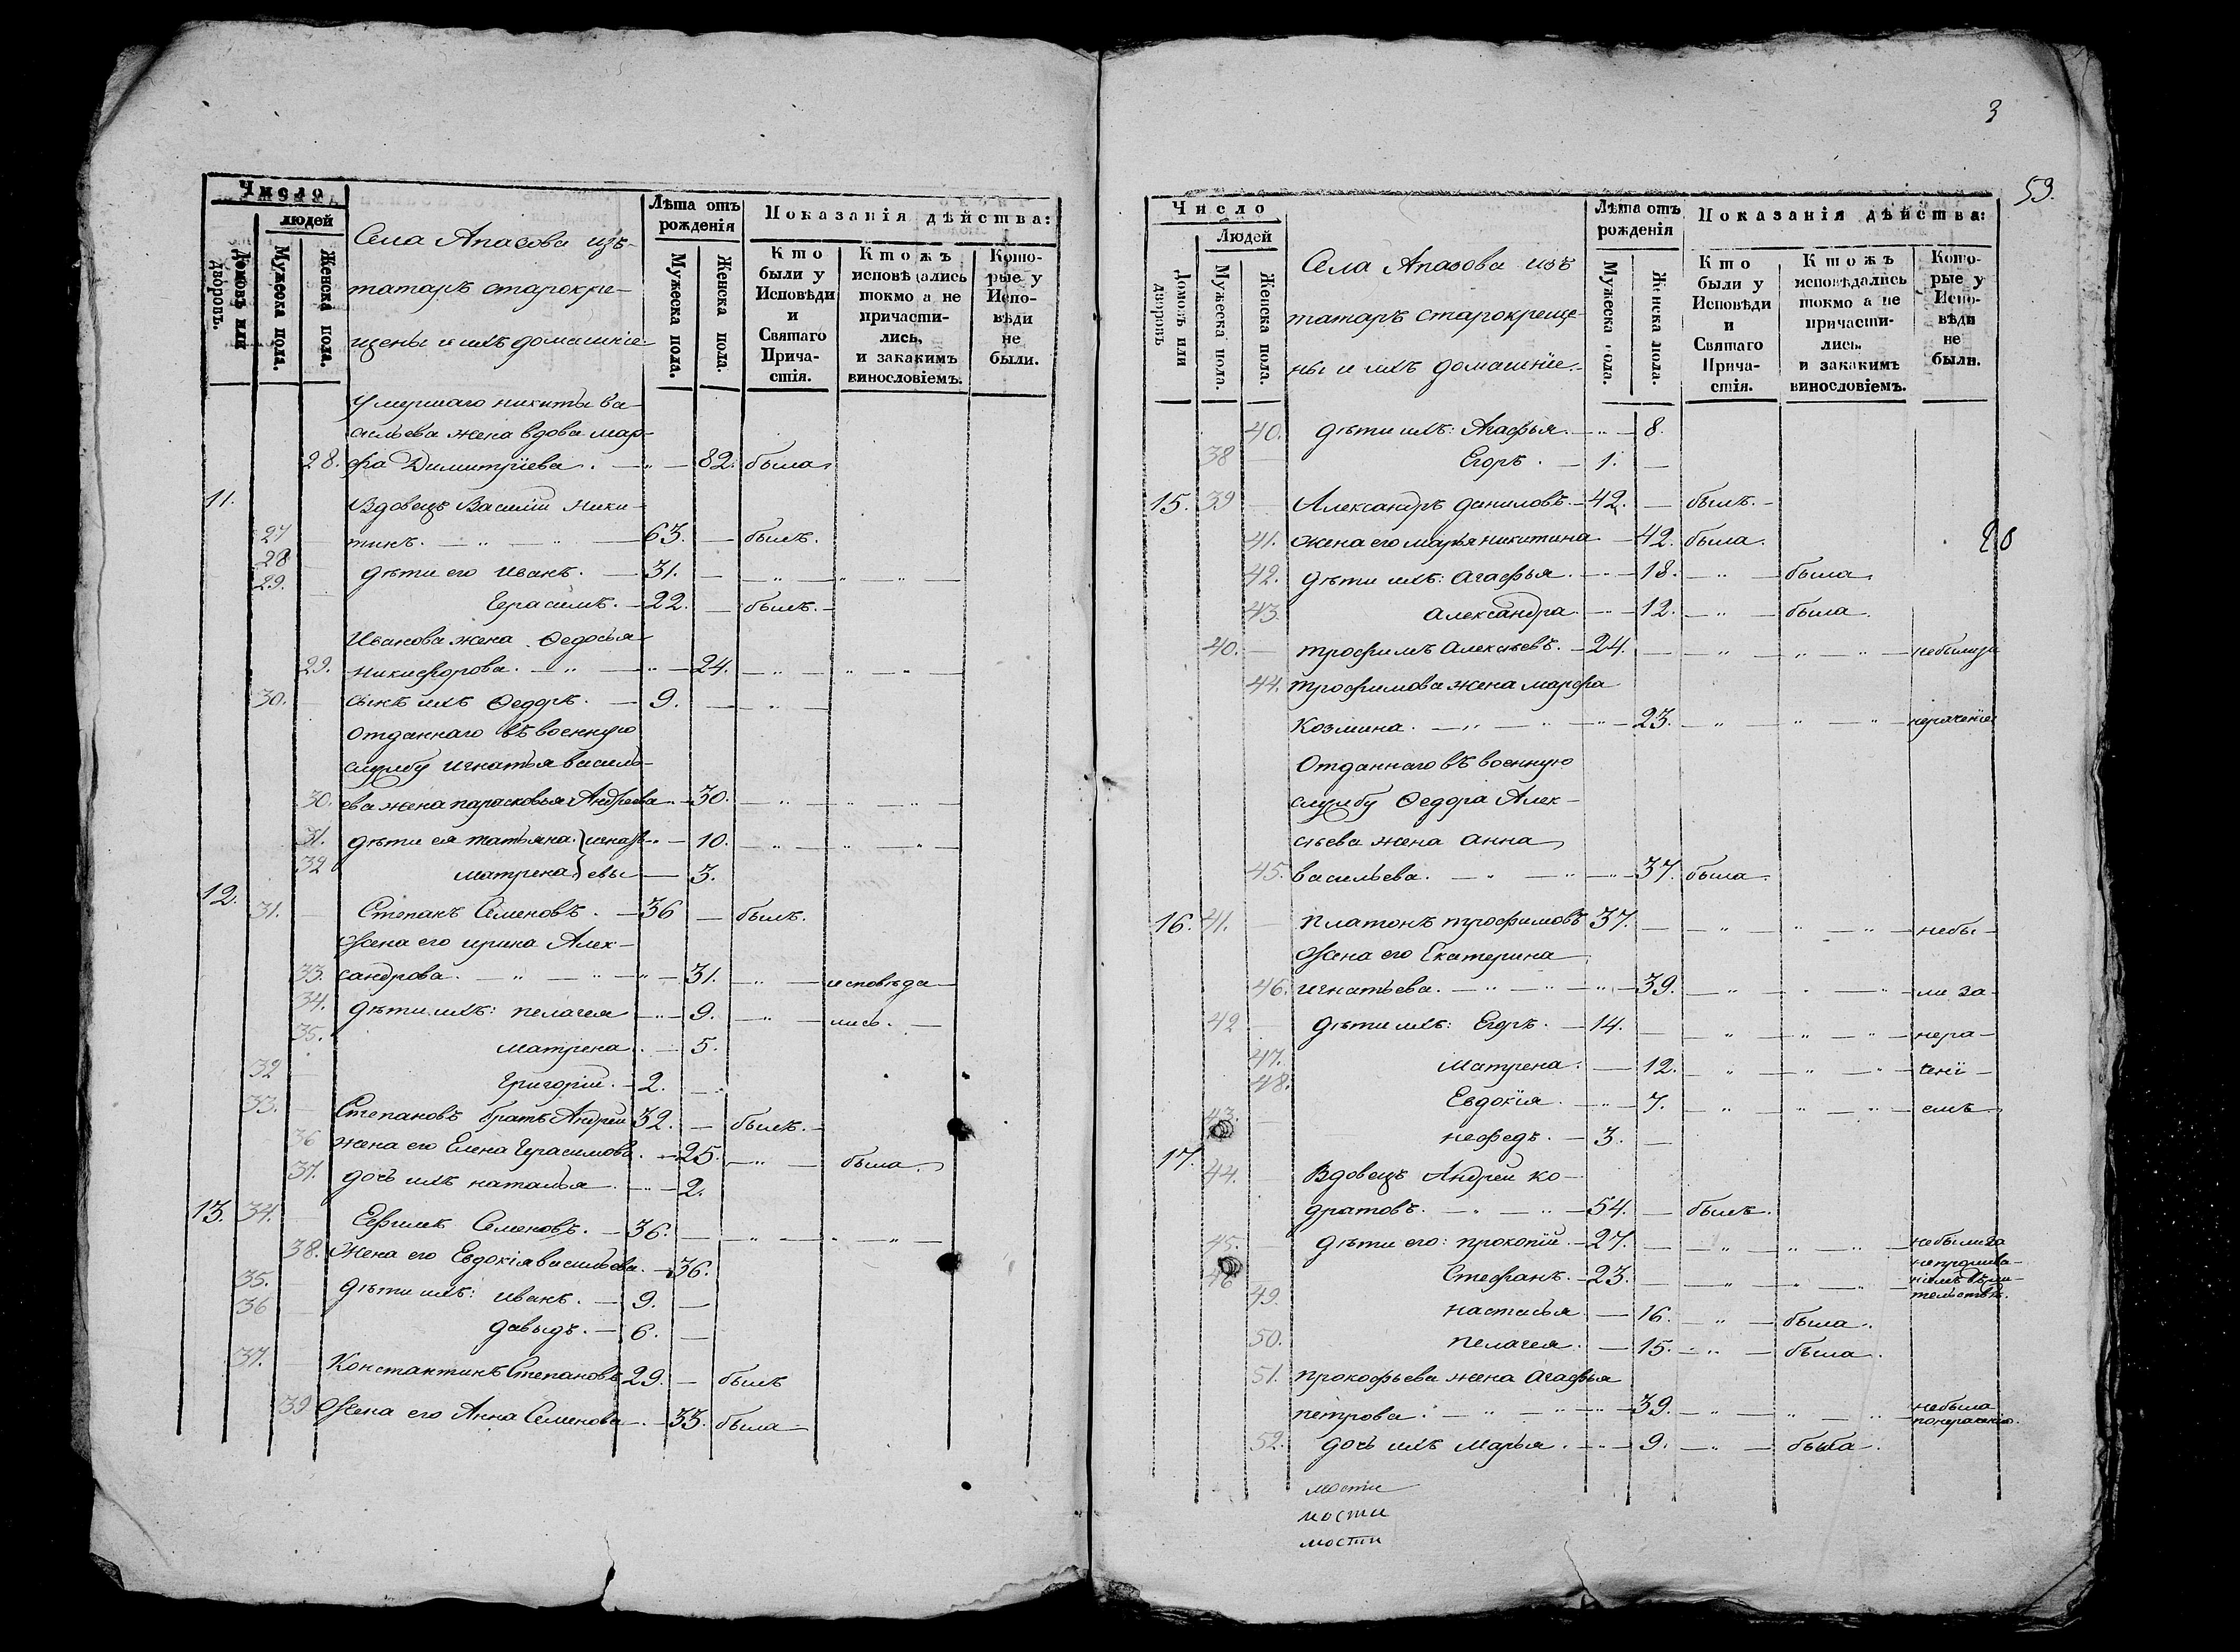 Число
людей
Домовъ или дворовъ.
Мужеска пола.
Женска пола.
Села Апазова изъ
татаръ старокре-
щены и ихъ домашніе.
Лѣта отъ рожденія
Мужеска пола.
Женска пола.
Показанія дѣйства:
Кто были у Исповѣди и Святаго Прича- стія.
Ктожъ исповѣдались токмо а не причасти- лись, и закакимъ винословіемъ.
Кото- рые у Испо- вѣди не были.
Умершаго никиты ва-
сильева жена вдова мар-
28. фа Димитріева. — „ — 82. была
11. Вдовецъ Василіи Ники-
27 тинъ. — „ — „ — 63. — былъ.
28 дѣти его Иванъ. — 31. — — „ — „ — „ —
29. Герасимъ. — 22. — былъ. —
Иванова жена Ѳедосья
29. никифорова. — „ — „ — 24. — „ — „ — „ —
30. сынъ ихъ Ѳедоръ. — 9. — — „ —
Отданнаго въ военную
службу игнатья василь-
30. ева жена парасковья Андреева „ — 30. — „ — „ — „ —
31. дѣти ея татьяна. } игнать „ — 10. — „ — „ — „ —
32 матрена } евы — 3.
12. 31. Степанъ Семеновъ. — 36 — былъ.
Жена его ирина Алек-
33. сандрова. — „ — „ — „ — 31. — „ — исповѣда-
34. дѣти ихъ: пелагея — „ — 9. — „ — лись. —
35. матрена. — 5.
32 Григоріи. — 2. —
33. Степановъ братъ Андреи 32. — былъ. —
36 жена его Елена Герасимова. — 25. — „ — была.
37. дочь ихъ наталья — „ — 2.
13. 34. Ефимъ Семеновъ. — 36. — — „ — „ — „ —
38. Жена его Евдокія васильева. — 36.
35. дѣти ихъ: иванъ. — 9. —
36 давыдъ. — 6. —
37. Константинъ Степановъ 29. — былъ
39 Жена его Анна Семенова — 33. была
3
59.
Число
Людей
Домовъ или дворовъ
Мужеска пола.
Женска пола.
Села Апазова изъ
татаръ старокреще-
ны и ихъ домашніе.
Лѣта отъ рожденія
Мужеска пола.
Женска пола.
Показанія дѣйства:
Кто были у Исповѣди и Святаго Прича- стія.
Ктожъ исповѣдались токмо а не причасти- лись, и закакимъ винословіемъ.
Кото- рые у Испо- вѣди не были.
40. дѣти ихъ: Агафья. — „ — 8.
38 Егоръ. — 1. —
15. 39 Александръ даниловъ. — 42. — былъ. —
41. жена его марья никитина — 42. была.
42. дѣти ихъ: агафья. — „ — 18. — „ — была.
43. александра. — „ — 12. — „ — была.
40. трофимъ алексѣевъ. — 24. — — „ — „ — „ — небылиза
44. трофимова жена марфа
козмина. — „ — „ — „ — 23. — „ — „ — „ — нераченіем
Отданнаго въ военную
службу Ѳедора Алек-
сѣева жена анна
45. васильева. — „ — „ — „ — 37. была.
16. 41. платонъ трофимовъ 37. — — „ — „ — „ — небы-
Жена его Екатерина
46. игнатьева. — „ — „ — „ — 39. — „ — „ — „ — ли за-
42 дѣти ихъ: Егоръ. — 14. — — „ — „ — „ — нера-
47. Матрена. — 12. — „ — „ — „ — чені-
48. Евдокія. — „ — 7. — „ — „ — „ — емъ
43. нефедъ. — 3. —
17. 44. Вдовецъ Андреи ко-
дратовъ. — „ — „ — 54. — былъ.
45. дѣти его: прокопіи. — 27. — — „ — „ — „ — небылиза
46 Стефанъ. — 23. — — „ — „ — „ —
49. настасья — 16. — „ — была.
50. пелагея. — 15. — „ — была.
51. прокофьева жена агафья
петрова. — „ — „ — „ — 39. — „ — „ — „ — небыла понераченію.
52. дочь ихъ марья. — „ — 9. — „ — была.
мости
мости
мости